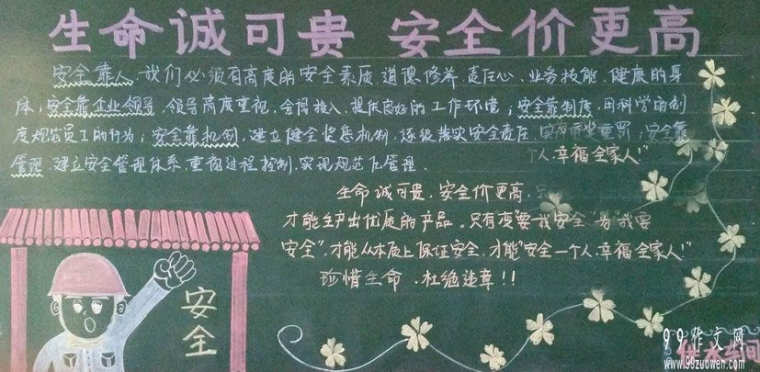 生命诚可贵 安全价更高
安全靠人,我们必须有高度的安全素质 道德修养 责任心、业务技能、健康的身
体;安全靠企业领导,领导高度重视,舍得投入,提供良好的工作环境;安全靠制度,用科学的制
度规范员工的行为;安全靠机制,建立健全奖惩机制,逐级落实安全责任 重罚;安全靠
管理,建立安全管理体系,重视过程控制,实现规范化管理.
人 幸福全家人!"
生命诚可贵,安全价更高,只
才能生产出优质的产品。只有变"要我安全"为"我要
安全",才能从本质上保证安全,才能"安全一个人,幸福全家人!"
珍惜生命,杜绝违章!!
安全
99作文网
www.99zuowen.com
供水车间